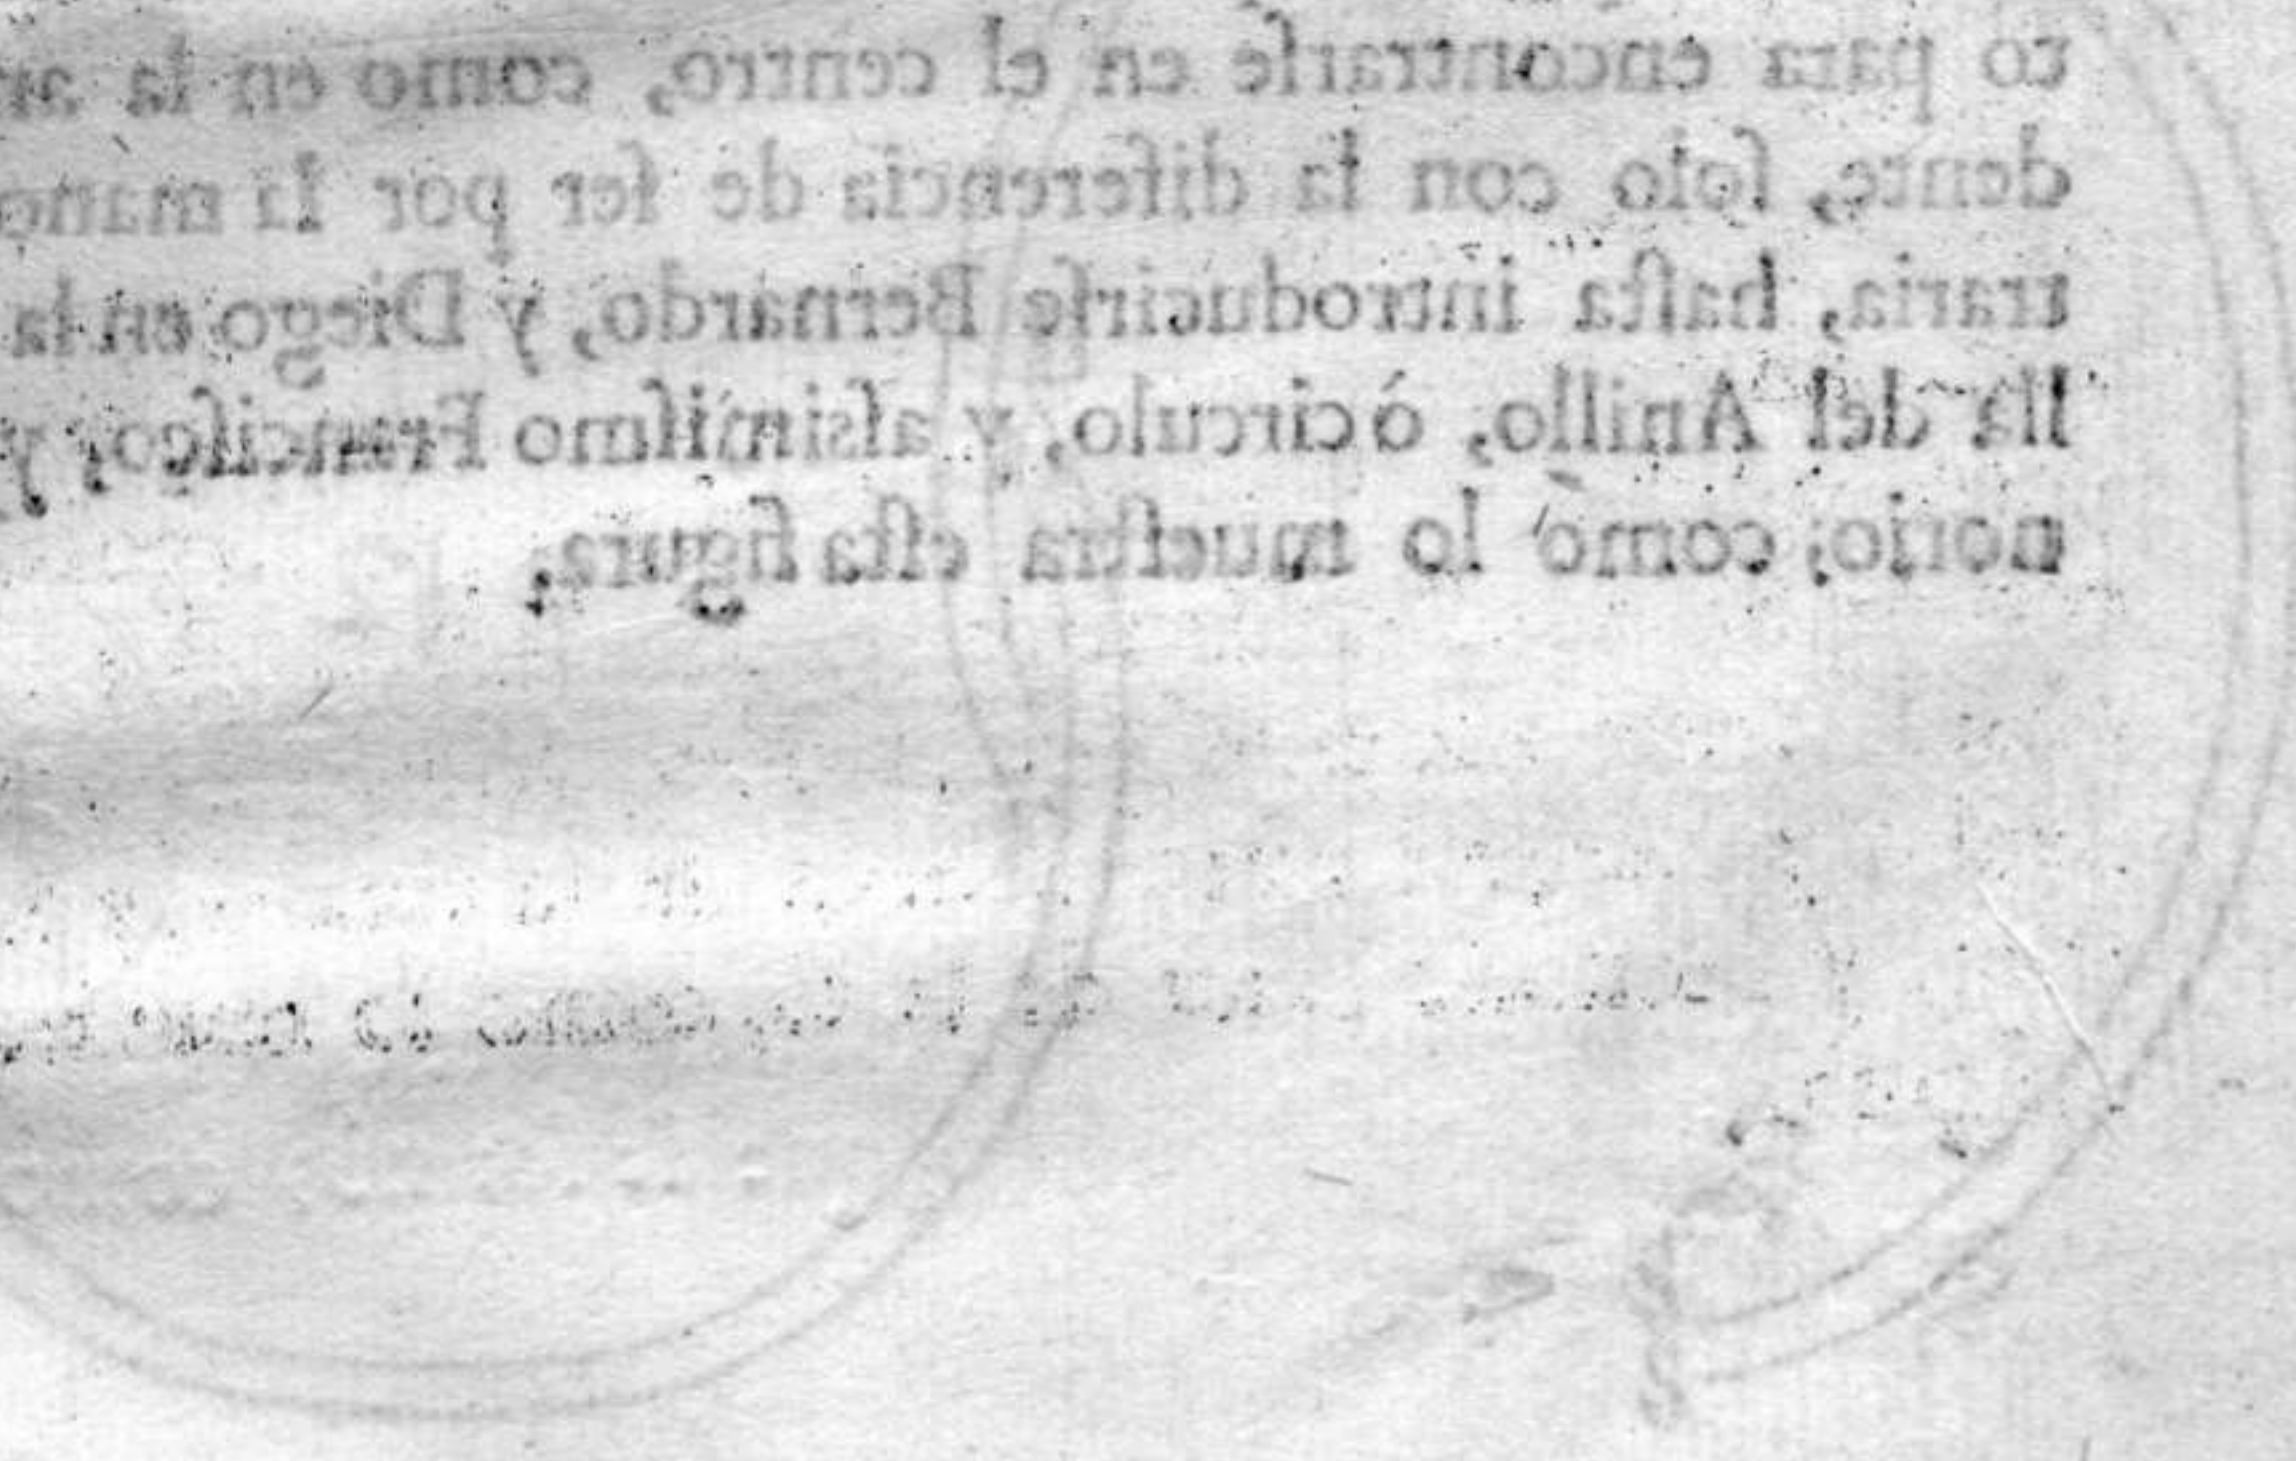 to para encontrarſe en el centro, como en la
dente, ſolo con la diferencia de ſer por la mano
traria, haſta introducirſe Bernardo, y Diego en la
lla del Anillo, ò circulo, y aſsimiſmo Franciſco, y
norio; como lo mueſtra eſta figura.